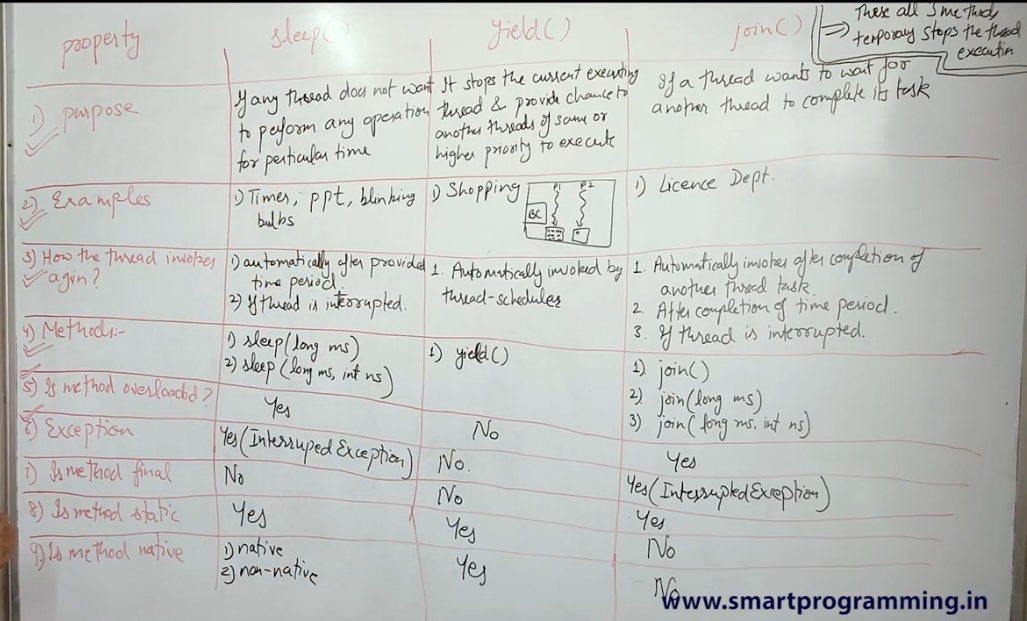 property
sleep()
yield()
join()
These all 3 methods
=> temporary stops the thread
execution
1) purpose
If any thread does not want
to perform any operation
for perticular time
It stops the current executing
thread & provide chance to
another threads of same or
higher priority to execute
If a thread wants to wait for
another thread to complete its task
2) Examples
1) Times, ppt, blinking
bulbs
1) Shopping
P1 P2
BC
1) Licence Dept.
3) How the thread invokes
again?
1) automatically after provided
time period.
2) If thread is interrupted.
1. Automatically invoked by
thread-schedules
1. Automatically invokes after completion of
another thread task.
2. After completion of time period.
3. If thread is interrupted.
4) Methods:-
1) sleep(long ms)
2) sleep(long ms, int ns)
1) yield()
1) join()
2) join(long ms)
3) join(long ms, int ns)
5) Is method overloaded?
Yes
No
Yes
6) Exception
Yes(Interruped Exception)
No.
Yes(InterruptedException)
7) Is method final
No
No
Yes
8) Is method static
Yes
Yes
No
9) Is method native
1) native
2) non-native
Yes
No
www.smartprogramming.in